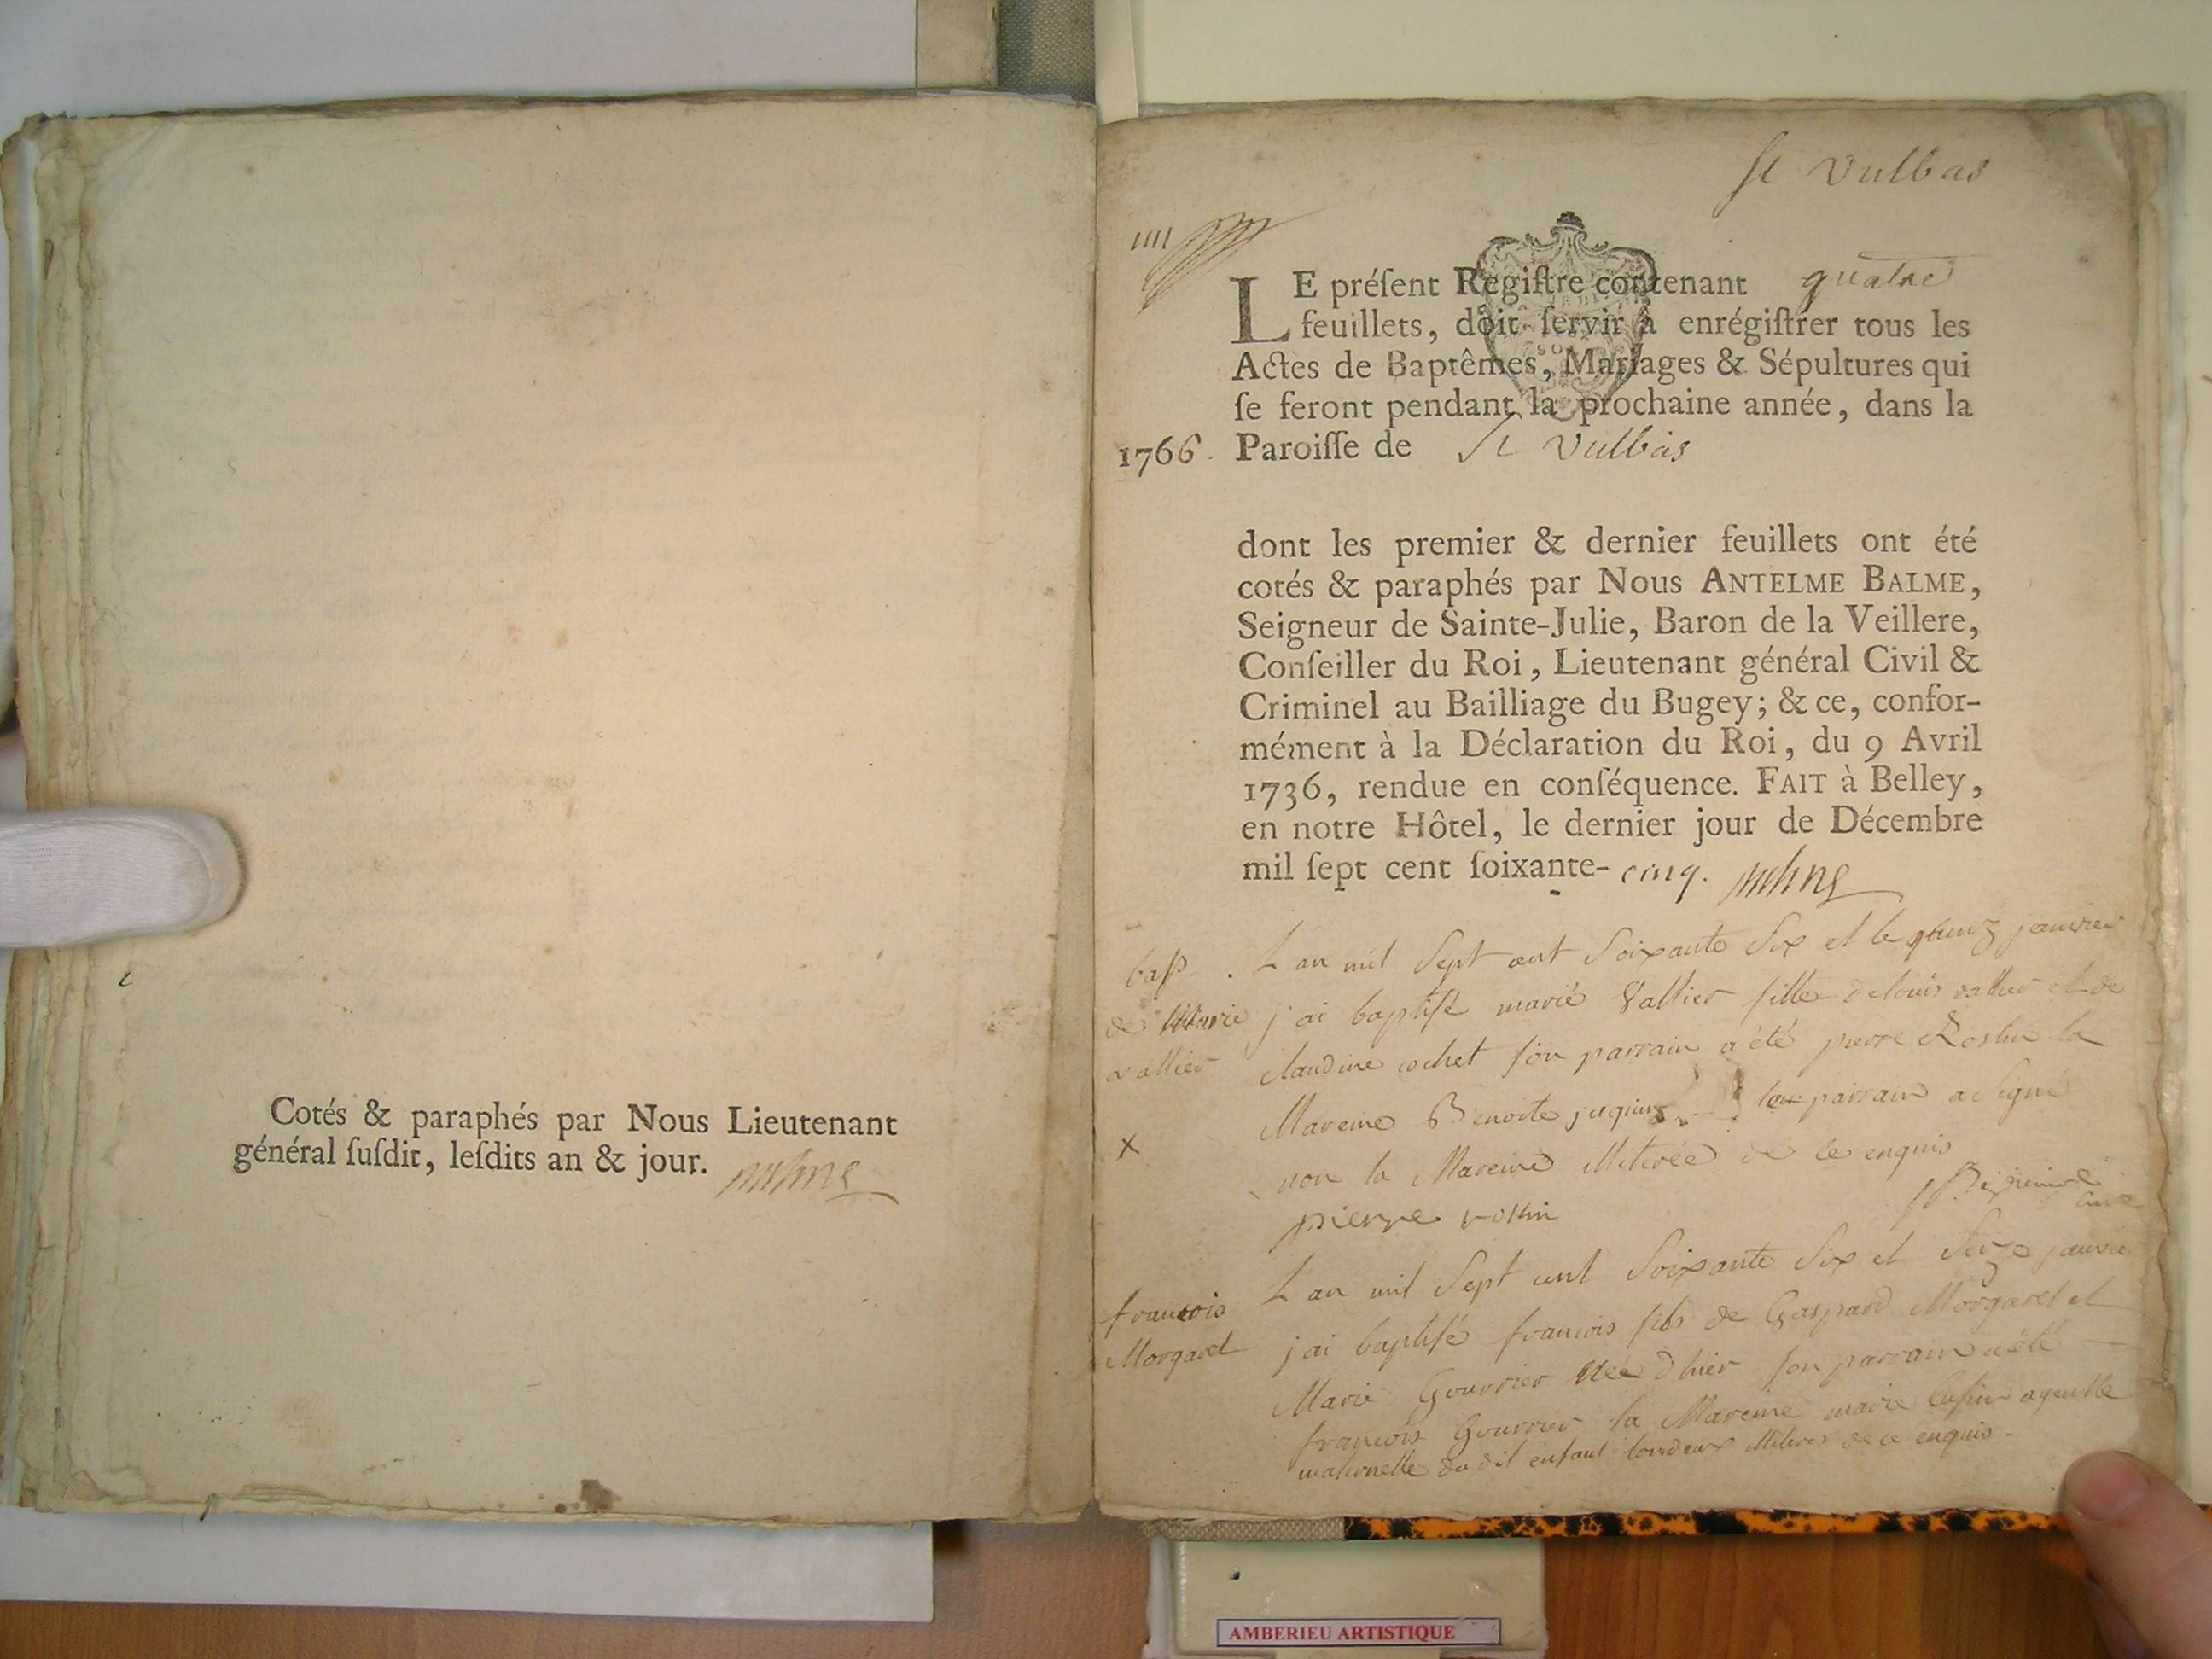 Cotés & paraphés par Nous Lieutenant
général ſuſdit, leſdits an & jour.
St Vulbas
IIII
LE préſent Regiſtre contenant quatre
feuillets, doit ſervir à enrégiſtrer tous les
Actes de Baptêmes, Mariages & Sépultures qui
ſe feront pendant la prochaine année, dans la
1766. Paroiſſe de St Vulbas
dont les premier & dernier feuillets ont été
cotés & paraphés par Nous ANTELME BALME,
Seigneur de Sainte-Julie, Baron de la Veillere,
Conſeiller du Roi, Lieutenant général Civil &
Criminel au Bailliage du Bugey; & ce, confor-
mément à la Déclaration du Roi, du 9 Avril
1736, rendue en conſéquence. FAIT à Belley,
en notre Hôtel, le dernier jour de Décembre
mil ſept cent ſoixante- cinq.
bap.
de Marie
vallier
L an mil Sept cent Soixante Six et le janvier
j'ai baptisé marie Vallier fille de louis vallier et de
claudine cochet son parrain a été pierre Rostin la
Mareine Benoite parrain a signé
non la Mareine illiterée de ce enquis
pierre rostin
curé
francois
Morgard
L an mil Sept cent Soixante Six et Seize janvier
j ai baptisé francois fils de Gaspard Morgard et
Marie Gourrier née d hier son parrain a été
francois Gourrier la Mareine marie ayeulle
maternelle du dit enfant tous deux illiteres de ce enquis
AMBERIEU ARTISTIQUE